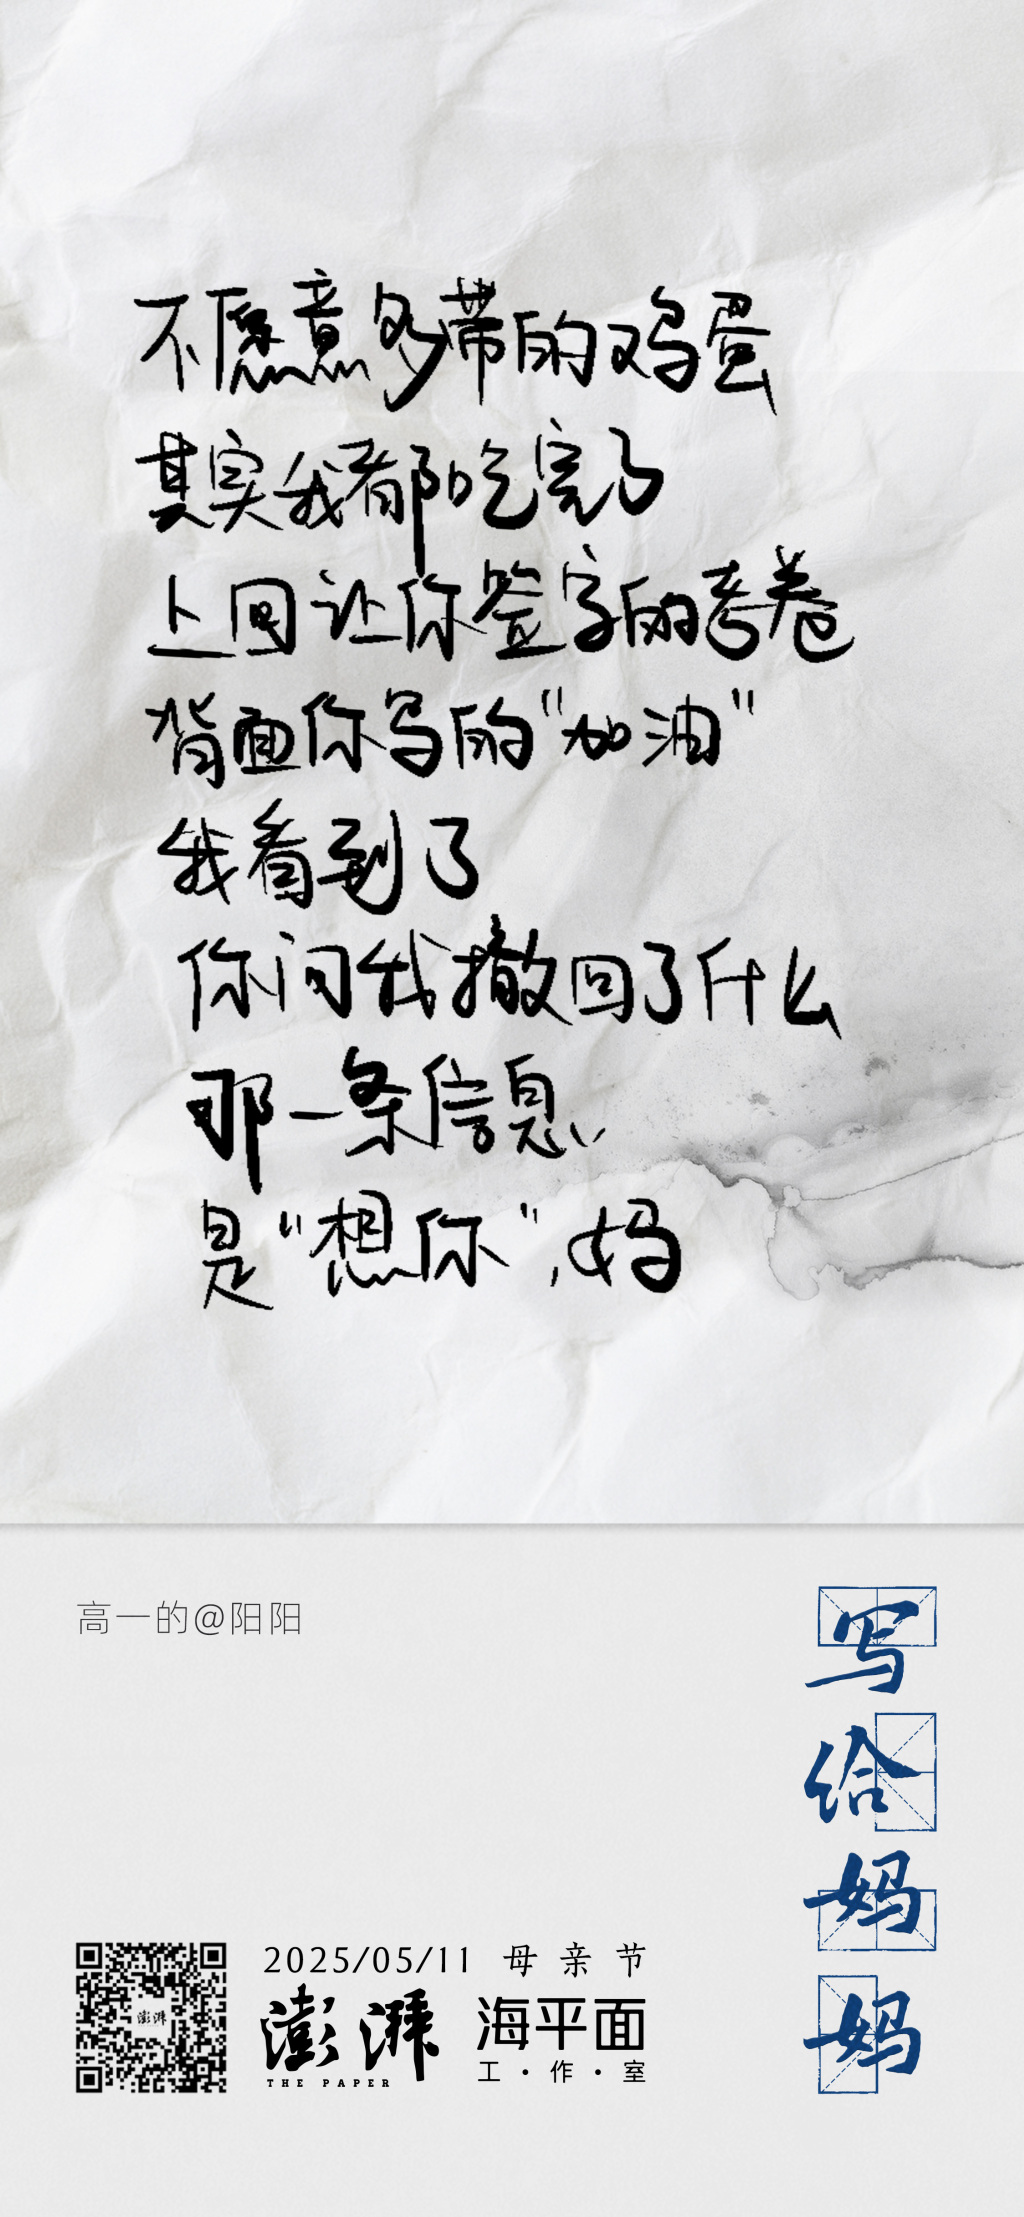 不愿意多带的鸡蛋
其实我都吃完了
上回让你签字的考卷
背面你写的"加油"
我看到了
你问我撤回了什么
那一条信息
是"想你",妈
高一的@阳阳
写给妈妈
澎湃
2025/05/11 母亲节
澎湃 海平面
THE PAPER 工·作·室